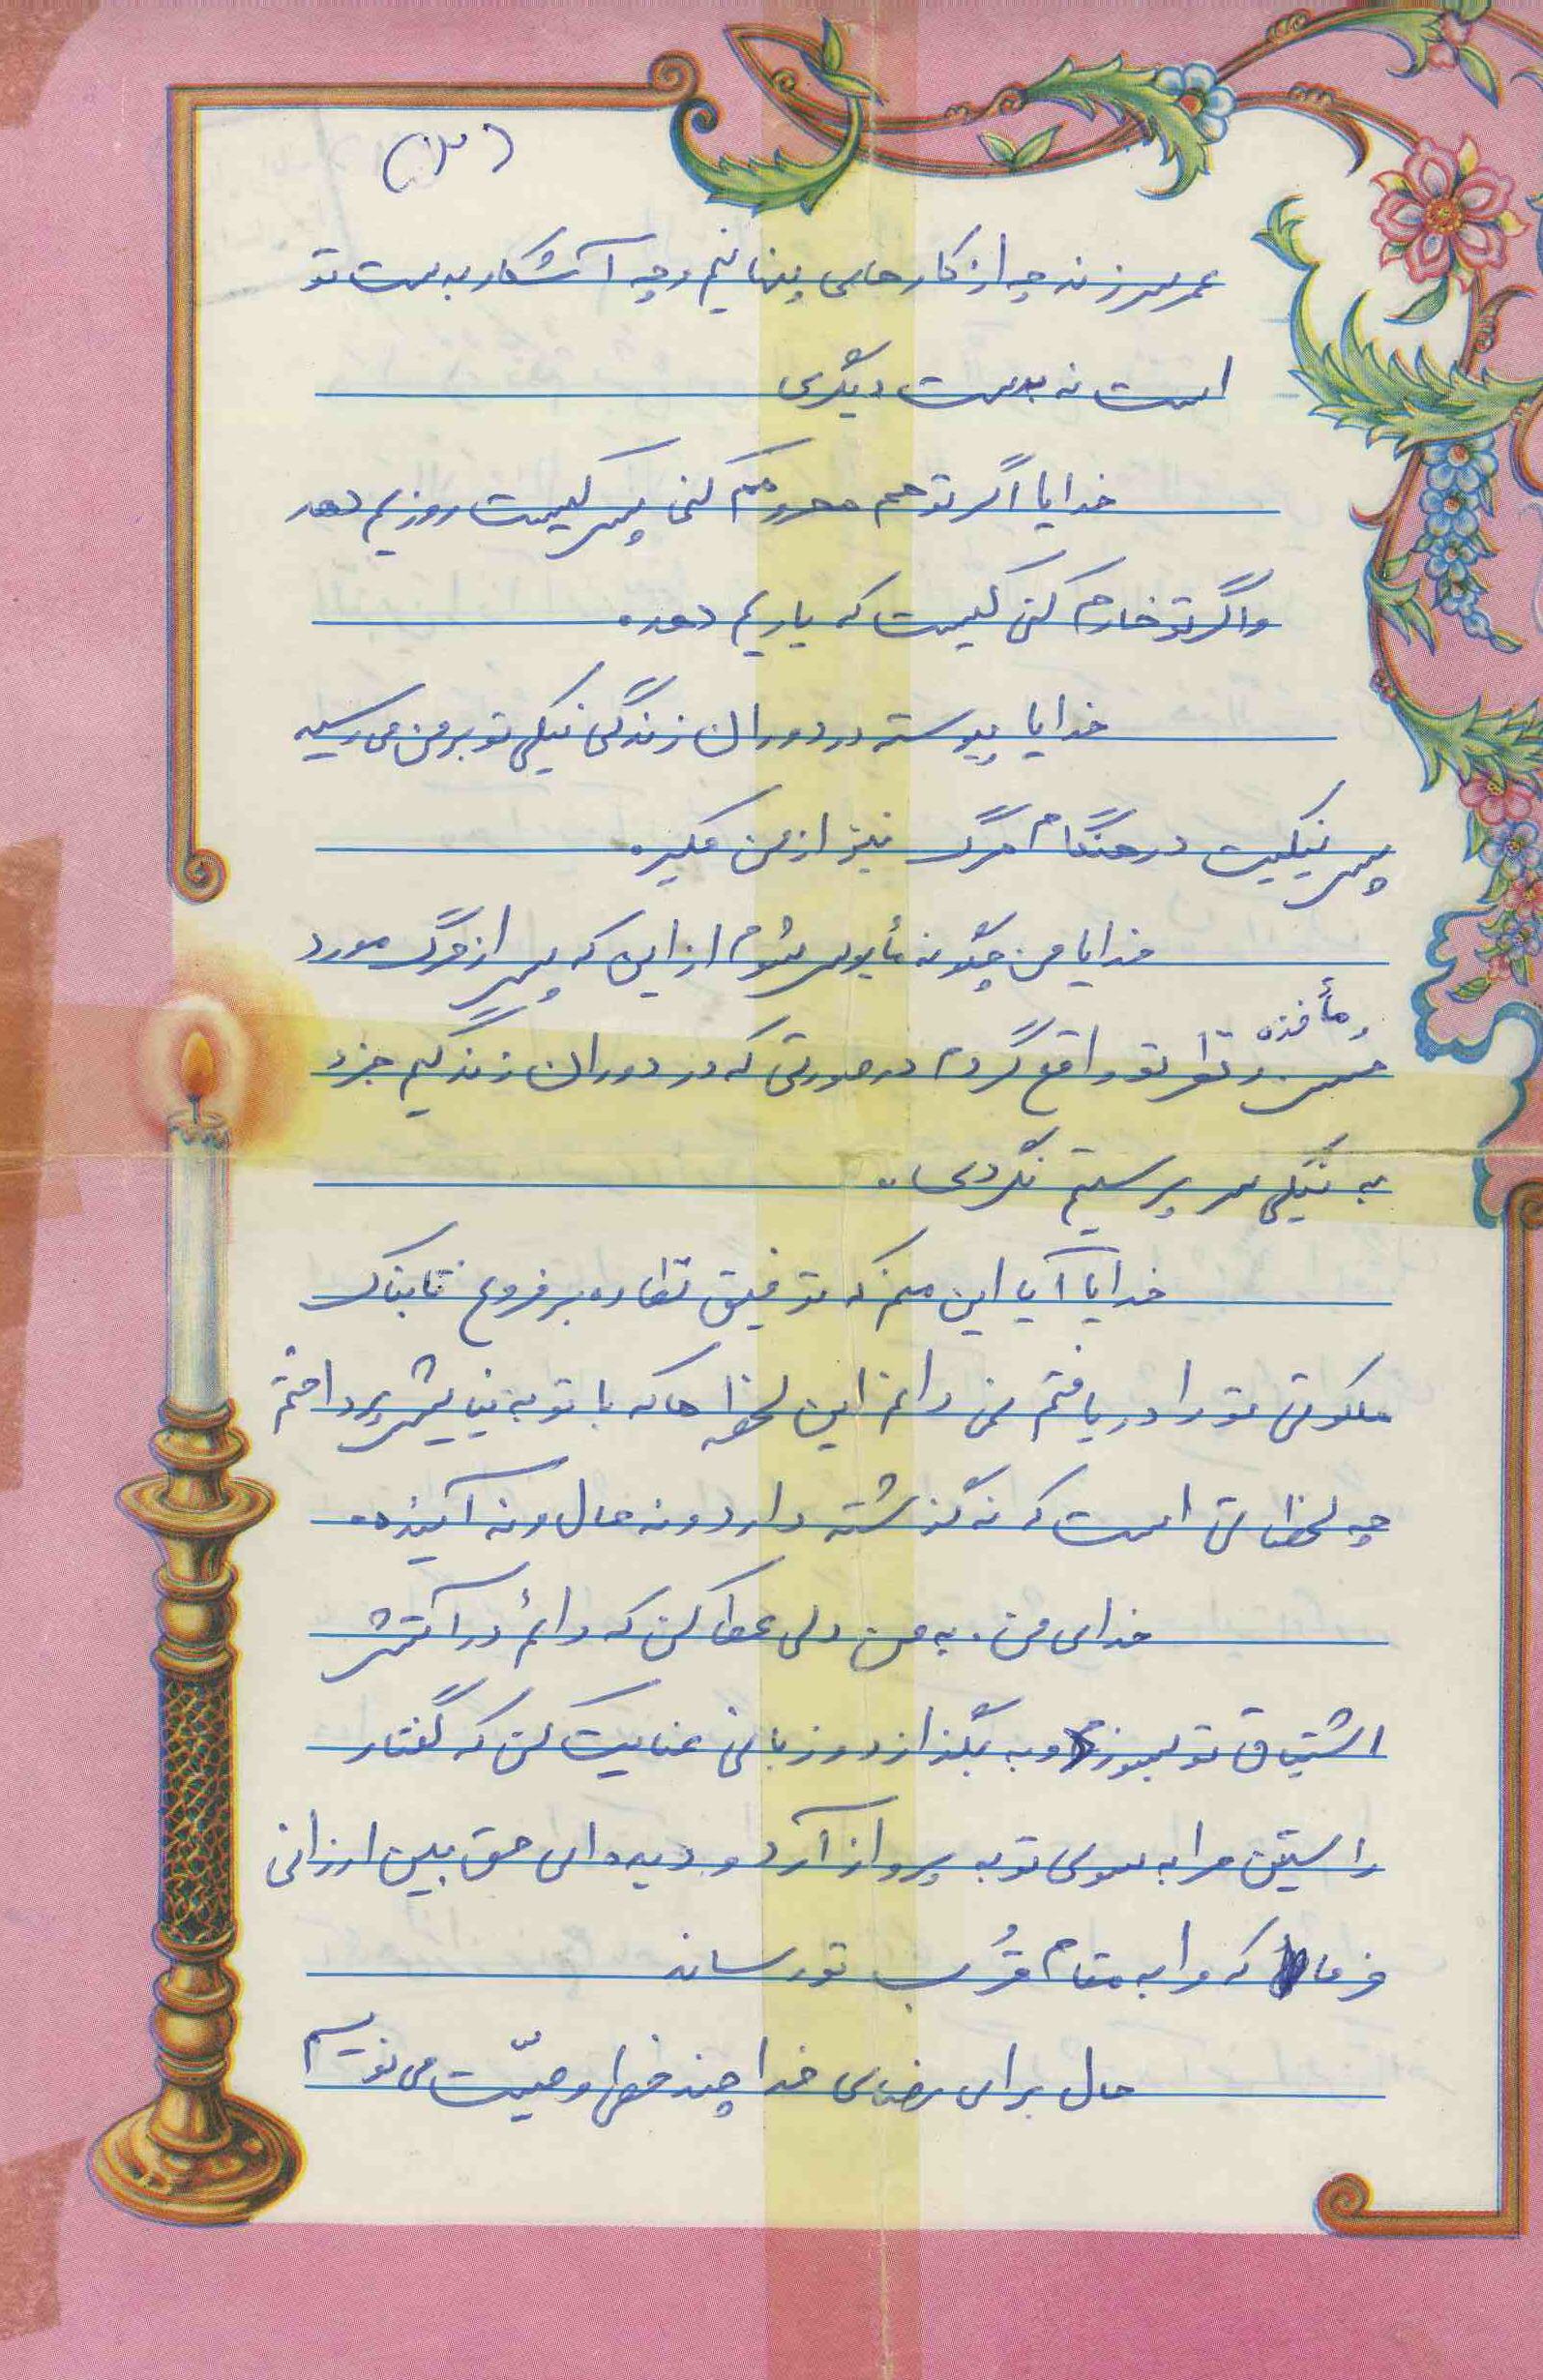 (۳)
عمر سر زند چه از کارهای پنهانیم و چه آشکار به دست تو
است نه بدست دیگری
خدایا اگر تو هم محرومم کنی پس کیست روزیم دهد
واگر تو خوارم کنی کیست که یاریم دهد.
خدایا پیوسته در دوران زندگی نیکی تو بر من می رسید
پس نیکیت در هنگام مرگ نیز از من مگیر.
خدایا من چگونه مأیوس شوم از این که پس از مرگ مورد
حسن و نظر تو واقع گردم در صورتی که در دوران زندگیم جزء
به نیکی سرپرستیم نکردی.
خدایا آیا این منم که توفیق نظاره بر فروغ تابناک
ملکوتی تو را دریافتم نمی دانم این لحظه ها که با تو به نیایش پرداختم
چه لحظاتی است که نه گذشته دارد و نه حال و نه آینده.
خدای من. به من دلی عطا کن که دائم در آتش
اشتیاق تو بسوزد و به بگذازد و زبانی عنایت کن که گفتار
راستین مرا به سوی تو به پرواز آرد و دیده ای حق بین ارزانی
فرما که مرا به مقام قُرب تو رساند
حال برای رضای خدا چند خطی وصیّت می نویسم